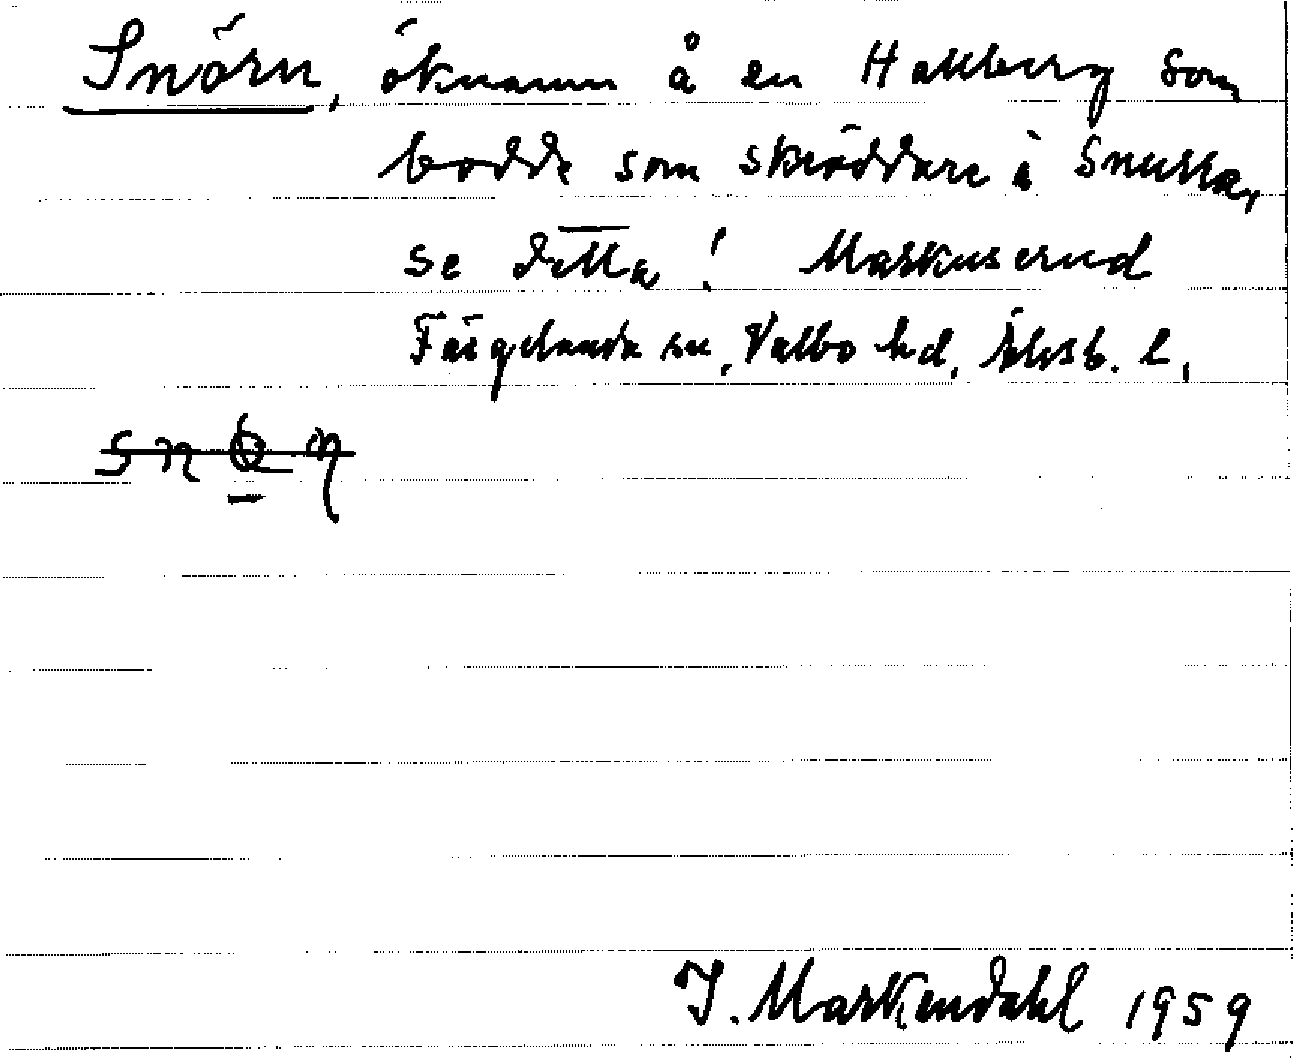 Snörn, öknamn å en Hallberg som
bodde som skräddare i Snulla,
se detta! Markuserud
Färgelanda sn, Valbo hd, Älvsb. l.
J. Markendahl 1959